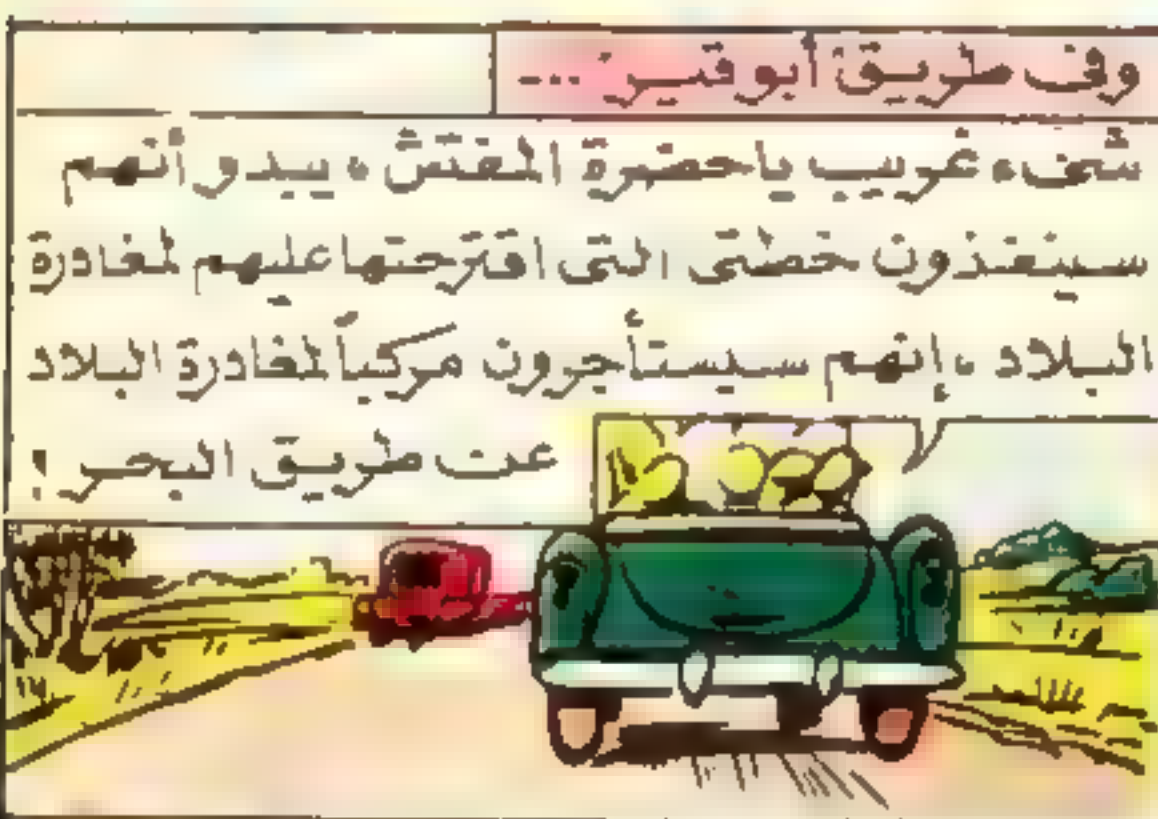 وفى طريق أبو قير ...
شىء غريب ياحضرة المفتش ، يبدو أنهم
سينفذون خطتى التى اقترحتها عليهم لمغادرة
البلاد ، إنهم سيستأجرون مركباً لمغادرة البلاد
عن طريق البحر !